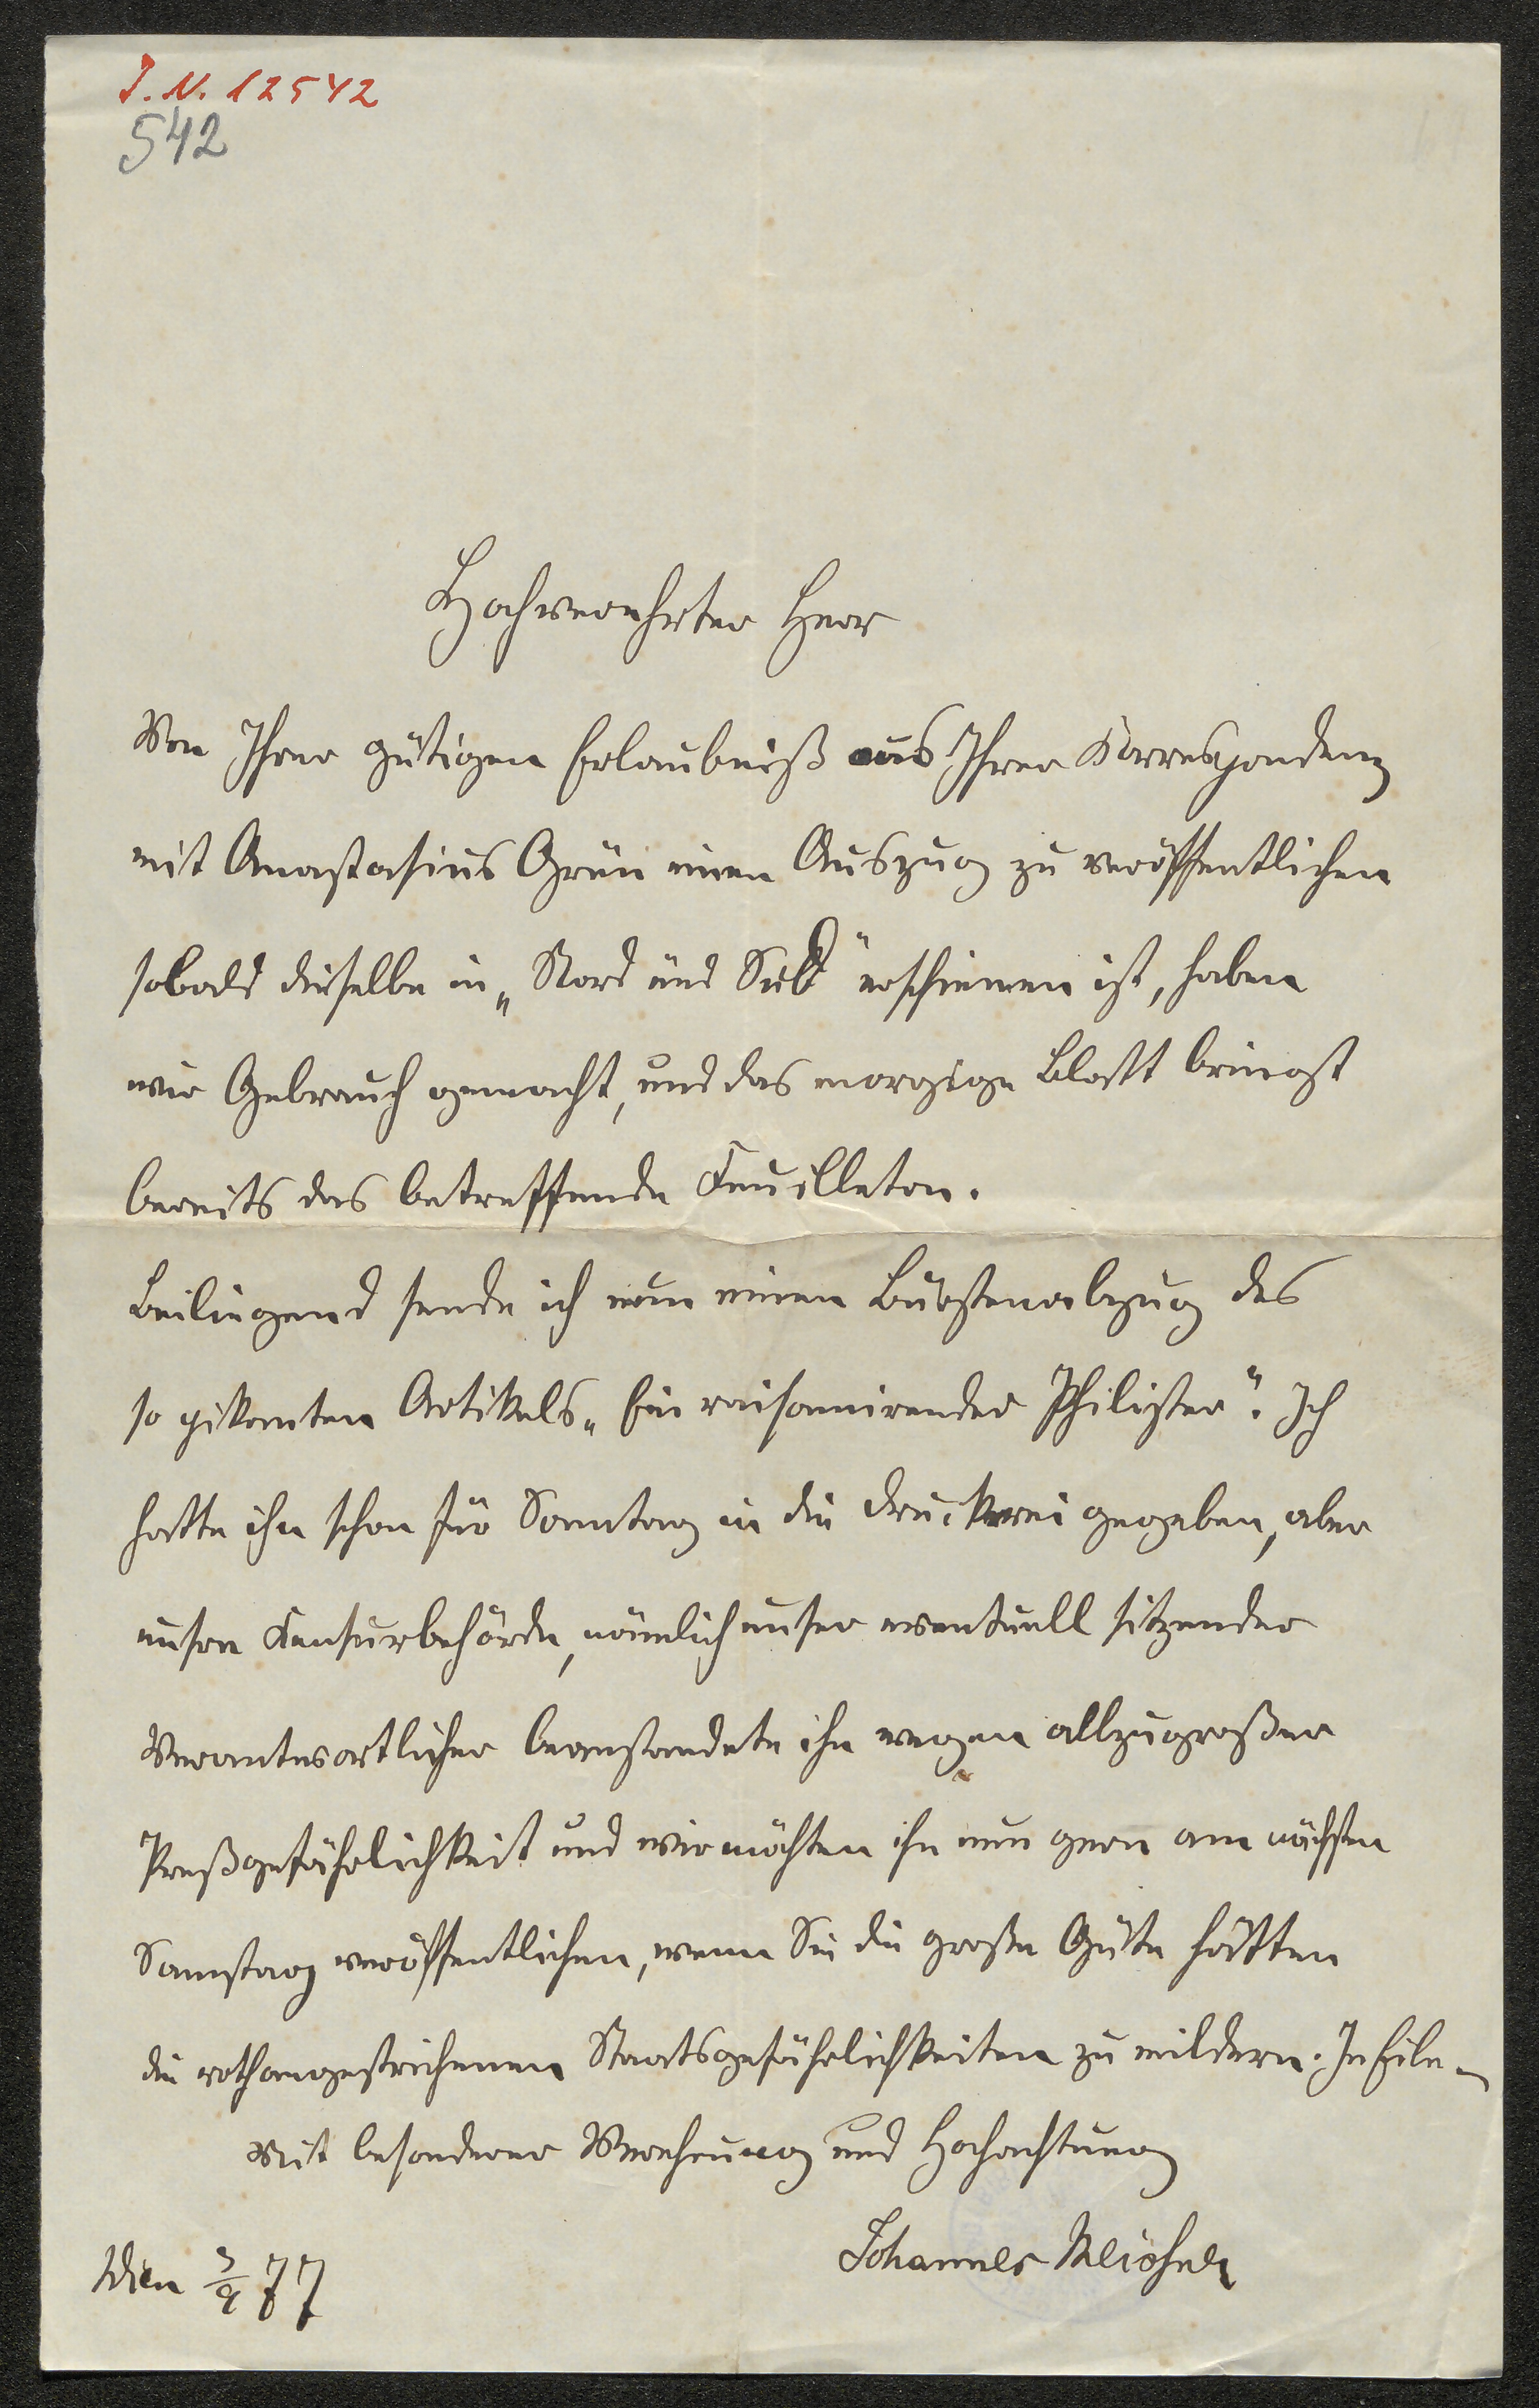 I. N. 12542
542
Hochverehrter Herr
Von Ihrer gütigen Erlaubniß aus Ihrer Korrespondenz
mit Anastasius Grün einen Auszug zu veröffentlichen
sobald dieselbe in „Nord und Süd" erschienen ist, haben
wir Gebrauch gemacht, und das morgige Blatt bringt
bereits das betreffende Feuilleton.
Beiliegend sende ich nun einen Bürstenabzug des
so pikanten Artikels „Ein raisonnirender Philister". Ich
hatte ihn schon für Sonntag in die Druckerei gegeben, aber
unsre Censurbehörde, nämlich unser eventuell sitzender
Verantwortlicher beanstandete ihn wegen allzugroßer
Preßgefährlichkeit und wir möchten ihn nun gern am nächsten
Samstag veröffentlichen, wenn Sie die große Güte hätten
die rothangestrichenen Staatsgefährlichkeiten zu mildern. In Eile
Mit besonderer Verehrung und Hochachtung
Johannes
Wien 3/9 77